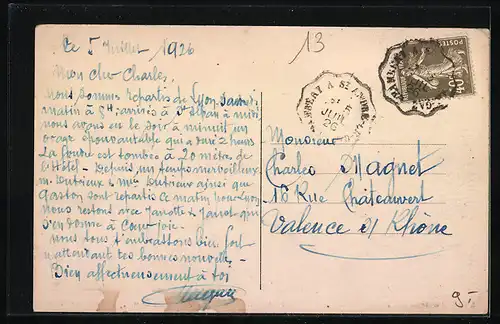 le 5 Juillet 1926
13
Mon cher Charles,
nous sommes repartis de Lyon Samedi
matin à 8H; arrivés à St Alban à midi
nous avons eu le soir à minuit un
orage épouvantable qui a duré 2 heures
La foudre est tombée à 20 mètres de
l'Hôtel - Depuis, un temps merveilleux
M. Dutrieux & Mme Dutrieux ainsi que
Gaston sont repartis ce matin pour Lyon
nous restons avec Janotte & Janot qui
s'en donne à Cœur joie.
nous tous t'embrassons bien fort
attendant tes bonnes nouvelles -
Bien affectueusement à toi
Monsieur
Charles Magnet
16 Rue Châteauvert
Valence s/ Rhône
POSTES
9.-